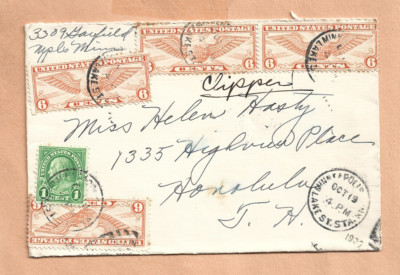 3309 Garfield
Mpls Minn
UNITED STATES POSTAGE
6 CENTS 6
UNITED STATES POSTAGE
6 CENTS 6
UNITED STATES POSTAGE
6 CENTS 6
Clipper
Miss Helen Hasty
1335 Highview Place
Honolulu
T. H.
1 1
UNITED STATES POSTAGE
6 CENTS 6
MINNEAPOLIS
OCT 19
4 PM
LAKE ST. STA.